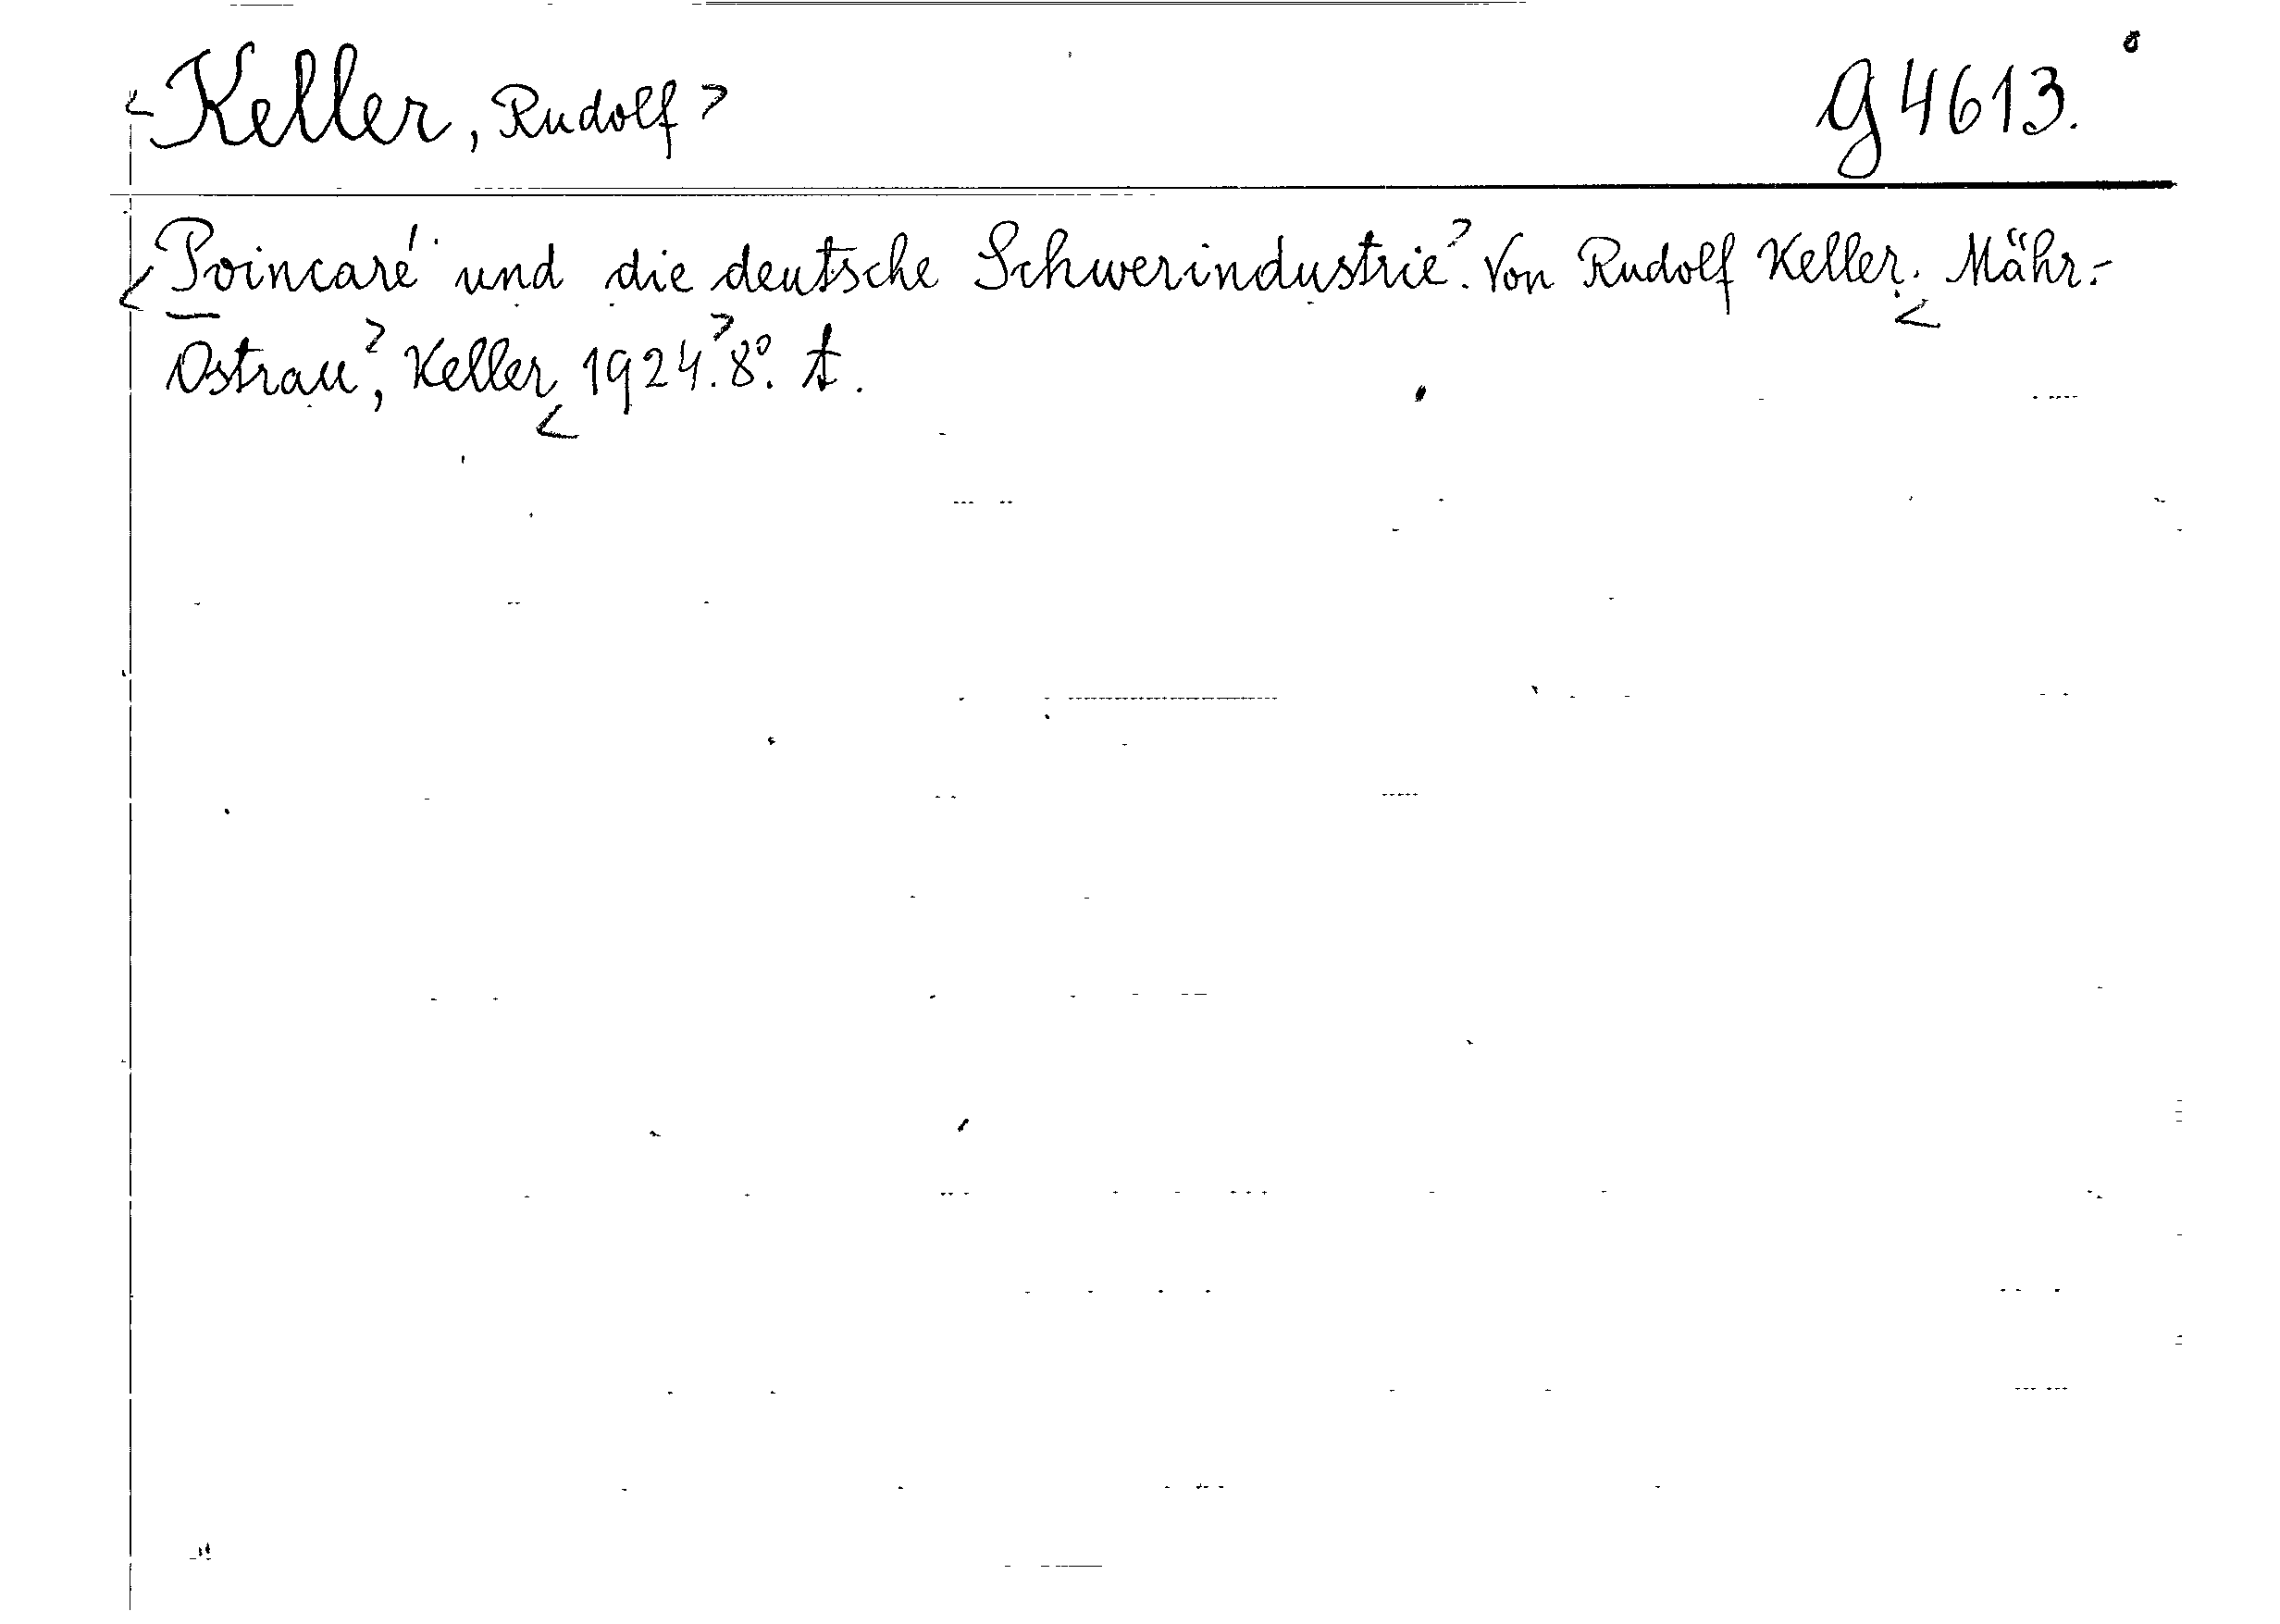 <Keller, Rudolf> G 4613.
<Poincaré und die deutsche Schwerindustrie>. Von Rudolf Keller. <Mähr.-
Ostrau>, Keller <1924.> 8°. t.